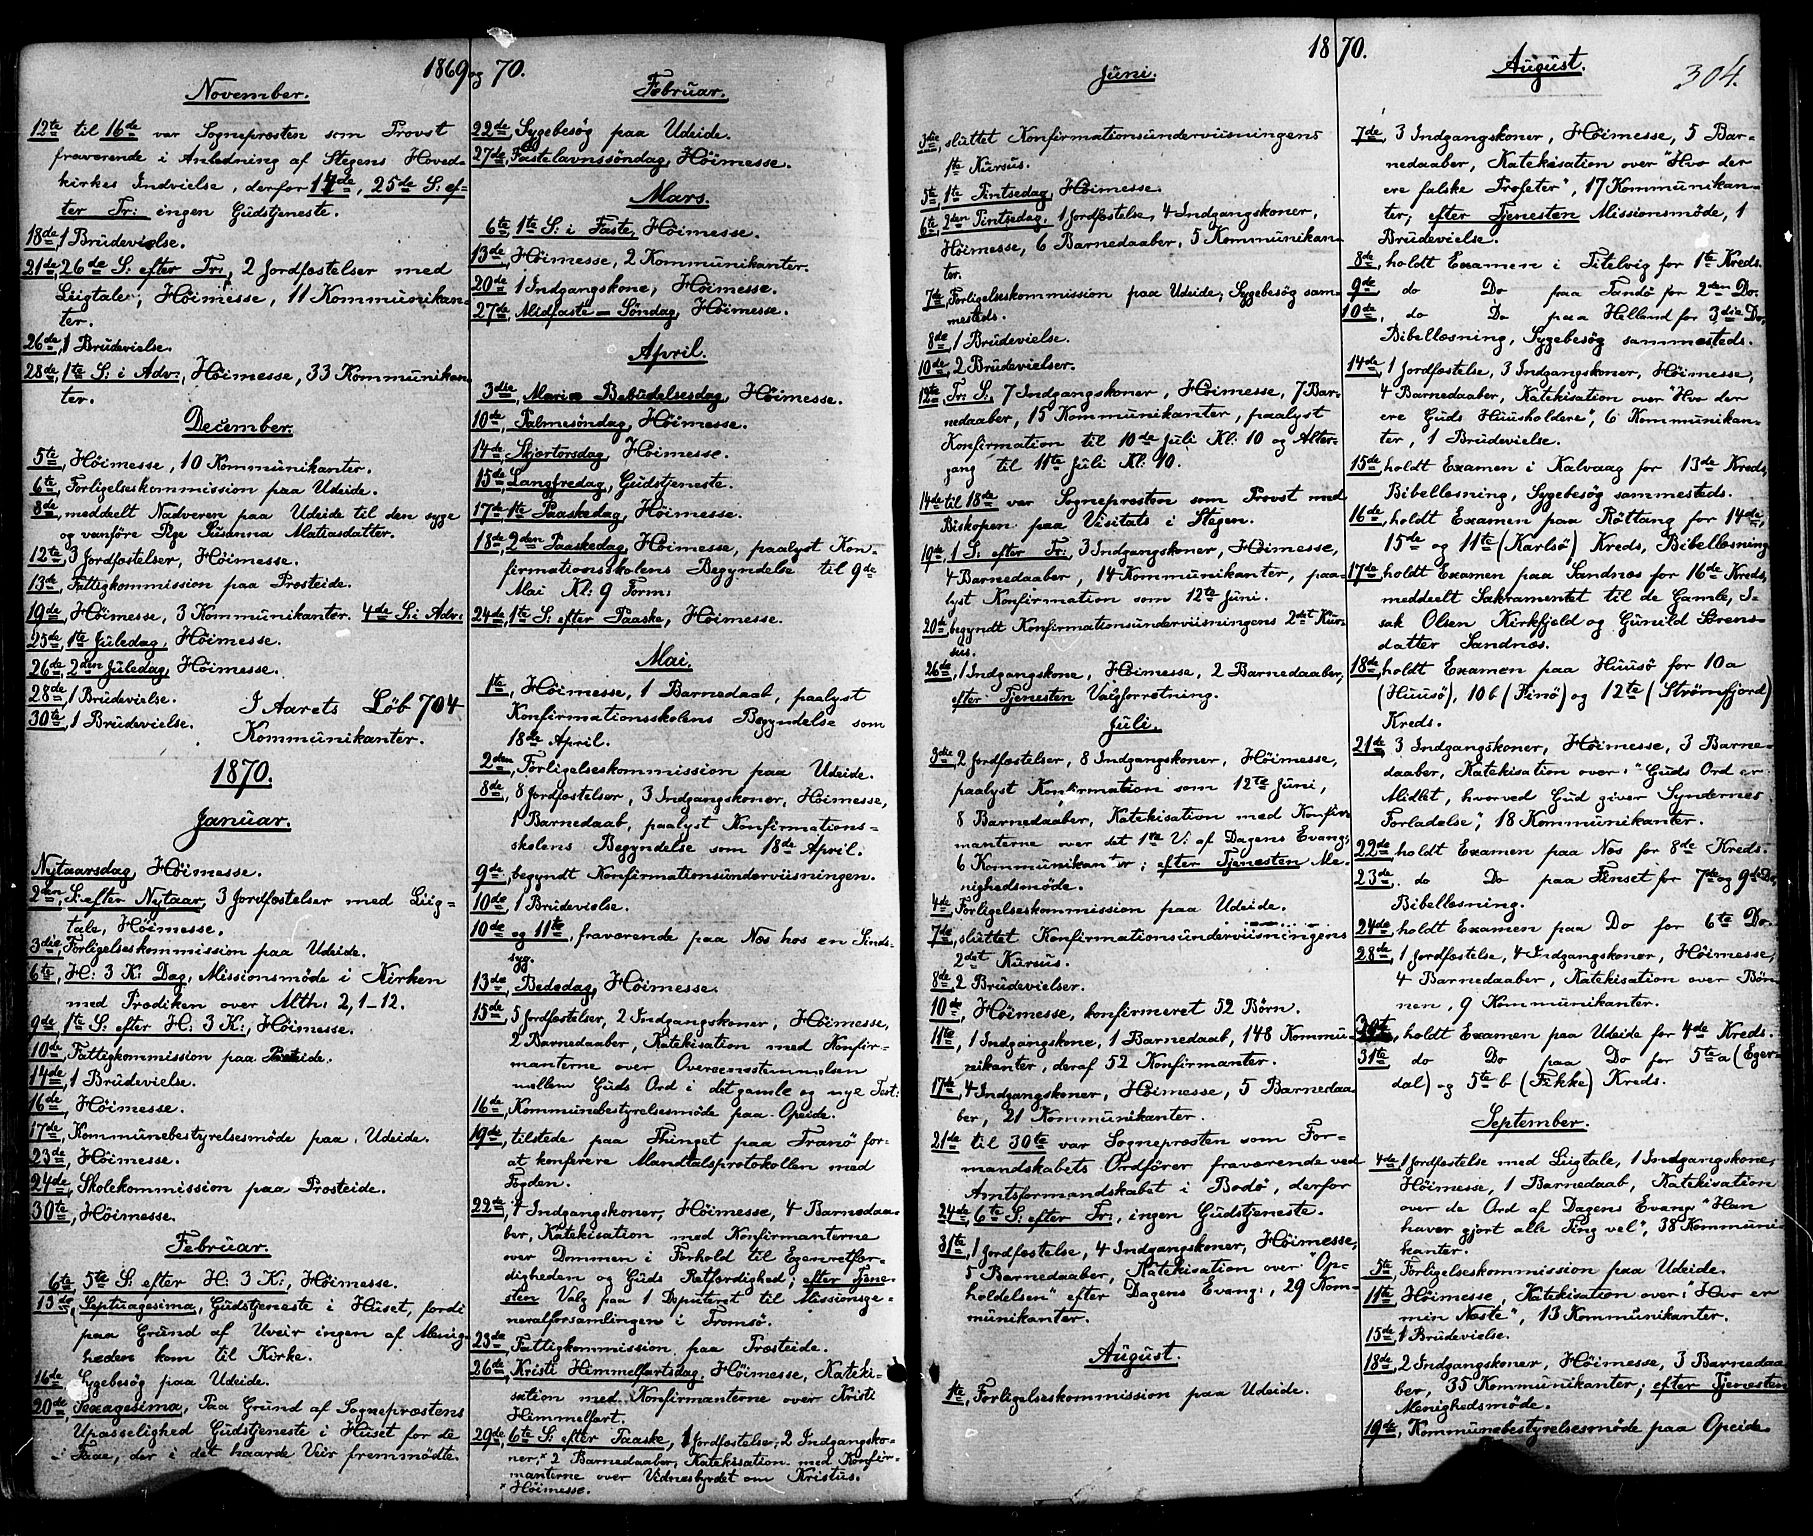 1869 og 70.
November.
12te til 16de var Sognepræsten som Provst
fraværende i Anledning af Stegens Hoved-
kirkes Indvielse, derfor 14de, 25de S: ef-
ter Tr: ingen Gudstjeneste.
18de, 1 Brudevielse.
21de, 26de S: efter Tr:, 2 Jordfæstelser med
Liigtale, Höimesse, 11 Kommunikan-
ter.
26de, 1 Brudevielse.
28de, 1te S: i Adv:, Höimesse, 33 Kommunikan-
ter.
December.
5te, Höimesse, 10 Kommunikanter.
6te, Forligelseskommission paa Udeide.
8de, meddeelt Nadveren paa Udeide til den syge
og vanföre Pige Susanna Matiasdatter.
12te, 3 Jordfæstelser, Höimesse.
13de, Fattigkommission paa Presteide.
19de, Höimesse, 3 Kommunikanter. 4de S: i Adv:
25de, 1te Juledag, Höimesse.
26de, 2den Juledag, Höimesse.
28de, 1 Brudevielse.
30te, 1 Brudevielse.
I Aarets Löb 704
Kommunikanter.
1870.
Januar.
Nytaarsdag, Höimesse.
2den, S: efter Nytaar, 3 Jordfæstelser med Liig-
tale, Höimesse.
3die, Forligelseskommission paa Udeide.
6te, H: 3 K: Dag, Missionsmöde i Kirken
med Prædiken over Mth: 2, 1-12.
9de, 1te S: efter H: 3 K:, Höimesse.
10de, Fattigkommission paa Presteide.
14de, 1 Brudevielse.
16de, Höimesse.
17de, Kommunebestyrelsesmöde paa Udeide.
23de, Höimesse.
24de, Skolekommission paa Prosteide.
30te, Höimesse.
Februar.
6te, 5te S: efter H: 3 K:, Höimesse.
13de, Septuagesima, Gudstjeneste i Huset, fordi
paa Grund af Uveir ingen af Menig-
heden kom til Kirke.
16de, Sygebesög paa Udeide.
20de, Sexagesima, Paa Grund af Sognepræstens
Upasselighed Gudstjeneste i Huset for de
Faae, der i det haarde Veir fremmödte.
Februar.
22de, Sygebesög paa Udeide.
27de, Fastelavnssöndag, Höimesse.
Mars.
6te, 1te S: i Faste, Höimesse.
13de, Höimesse, 2 Kommunikanter.
20de, 1 Indgangskone, Höimesse.
27de, Midfaste-Söndag, Höimesse.
April.
3die, Mariæ Bebudelsesdag, Höimesse.
10de, Palmesöndag, Höimesse.
14de, Skjærtorsdag, Höimesse.
15de, Langfredag, Gudstjeneste.
17de, 1te Paaskedag, Höimesse.
18de, 2den Paaskedag, Höimesse, paalyst Kon-
firmationsskolens Begyndelse til 9de
Mai Kl: 9 Form:
24de, 1te S: efter Paaske, Höimesse.
Mai.
1te, Höimesse, 1 Barnedaab, paalyst
Konfirmationsskolens Begyndelse som
18de April.
2den, Forligelseskommission paa Udeide.
8de, 8 Jordfæstelser, 3 Indgangskoner, Höimesse,
1 Barnedaab, paalyst Konfirmations-
skolens Begyndelse som 18de April.
9de, begyndt Konfirmationsunderviisningen.
10de, 1 Brudevielse.
10de og 11te, fraværende paa Nos hos en Sinds-
syg.
13de, Bededag, Höimesse.
15de, 5 Jordfæstelser, 2 Indgangskoner, Höimesse,
2 Barnedaaber, Katekisation med Konfir-
manterne over Overensstemmelsen
mellem Guds Ord i det gamle og nye Test:
16de, Kommunebestyrelsesmöde paa Opeide.
19de, tilstede paa Thinget paa Tranö for
at konferere Mandtalsprotokollen med
Fogden.
22de, 4 Indgangskoner, Höimesse, 4 Barnedaa-
ber, Katekisation med Konfirmanterne
over Dommen i Forhold til Egenretfær-
digheden og Guds Retfærdighed; efter Tjene-
sten Valg paa 1 Deputeret til Missionsge-
neralforsamlingen i Tromsö.
23de, Fattigkommission paa Prosteide.
26de, Kristi Himmelfartsdag, Höimesse, Kateki-
sation med Konfirmanterne over Kristi
Himmelfart.
29de, 6te S: efter Paaske, 1 Jordfæstelse, 2 Indgangsko-
ner,* 2 Barnedaaber, Katekisation med Konfir-
manterne over Vidnesbyrdet om Kristus.
* Höimesse.
1870.
304.
Juni.
3die, sluttet Konfirmationsunderviisningens
1te Kursus.
5te, 1te Pintsedag, Höimesse.
6te, 2den Pintsedag, 1 Jordfæstelse, 4 Indgangskoner,
Höimesse, 6 Barnedaaber, 5 Kommunikan-
ter.
7te, Forligelseskommission paa Udeide, Sygebesög sam-
mesteds.
8de, 1 Brudevielse.
10de, 2 Brudevielser.
12te, Tr: S:, 7 Indgangskoner, Höimesse, 7 Bar-
nedaaber, 15 Kommunikanter, paalyst
Konfirmation til 10de Juli Kl: 10 og Alter-
gang til 11te Juli Kl: 10.
14de til 18de var Sognepræsten som Provst med
Biskopen paa Visitats i Stegen.
19de, 1 S: efter Tr:, 3 Indgangskoner, Höimesse,
4 Barnedaaber, 14 Kommunikanter, paa-
lyst Konfirmation som 12te Juni.
20de, begyndt Konfirmationsunderviisningens 2det Kur-
sus.
26de, 1 Indgangskone, Höimesse, 2 Barnedaaber,
efter Tjenesten Valgforretning.
Juli.
3die, 2 Jordfæstelser, 8 Indgangskoner, Höimesse,
paalyst Konfirmation som 12te Juni,
8 Barnedaaber, Katekisation med Konfir-
manterne over det 1te V: af Dagens Evang:,
6 Kommunikanter; efter Tjenesten Me-
nighedsmöde.
4de, Forligelseskommission paa Udeide.
7de, sluttet Konfirmationsunderviisningens
2det Kursus.
8de, 2 Brudevielser.
10de, Höimesse, konfirmeret 52 Börn.
11te, 1 Indgangskone, 1 Barnedaab, 148 Kommu-
nikanter, deraf 52 Konfirmanter.
17de, 4 Indgangskoner, Höimesse, 5 Barnedaa-
ber, 21 Kommunikanter.
21de til 30te var Sognepræsten som For-
mandskabets Ordförer fraværende ved
Amtsformandskabet i Bodö, derfor
24de, 6te S: efter Tr:, ingen Gudstjeneste.
31te, 1 Jordfæstelse, 4 Indgangskoner, Höimesse,
5 Barnedaaber, Katekisation over "Op-
holdelsen" efter Dagens Evang:, 29 Kom-
munikanter.
August.
1te, Forligelseskommission paa Udeide.
August.
7de, 3 Indgangskoner, Höimesse, 5 Bar-
nedaaber, Katekisation over "Hvo der
ere falske Profeter", 17 Kommunikan-
ter, efter Tjenesten Missionsmöde, 1
Brudevielse.
8de, holdt Examen i Titelvig for 1te Kreds.
9de, do Do paa Tandö for 2den Do.
10de, do Do paa Helland for 3die Do,
Bibellæsning, Sygebesög sammesteds.
14de, 1 Jordfæstelse, 3 Indgangskoner, Höimesse,
4 Barnedaaber, Katekisation over "Hvo der
ere Guds Huusholdere", 6 Kommunikan-
ter, 1 Brudevielse.
15de, holdt Examen i Kalvaag for 13de Kreds,
Bibellæsning, Sygebesög sammesteds.
16de, holdt Examen paa Röttang for 14de,
15de og 11te (Karlsö) Kreds, Bibellæsning.
17de, holdt Examen paa Sandnæs for 16de Kreds,
meddeelt Sakramentet til de Gamle, I-
sak Olsen Kirkfjeld og Gunild Sørens-
datter Sandnæs.
18de, holdt Examen paa Huusö for 10a
(Huusö), 10b (Finö) og 12te (Strömfjord)
Kreds.
21de, 3 Indgangskoner, Höimesse, 3 Barne-
daaber, Katekisation over: "Guds Ord er
Midlet, hvorved Gud giver Syndernes
Forladelse", 18 Kommunikanter.
22de, holdt Examen paa Nos for 8de Kreds.
23de, do Do paa Finset for 7de og 9de Do,
Bibellæsning.
24de, holdt Examen paa Do for 6te Do.
28de, 1 Jordfæstelse, 4 Indgangskoner, Höimesse,
4 Barnedaaber, Katekisation over Bön-
nen, 9 Kommunikanter.
30te, holdt Examen paa Udeide for 4de Kreds.
31te do Do paa Do for 5te a (Eger-
dal) og 5te b (Fikke) Kreds.
September.
4de, 1 Jordfæstelse med Liigtale, 1 Indgangskone,
Höimesse, 1 Barnedaab, Katekisation
over de Ord af Dagens Evang: "Han
haver gjort alle Ting vel", 38 Kommuni-
kanter.
5te, Forligelseskommission paa Udeide.
11te, Höimesse, Katekisation over: "Hvo er
min Næste", 13 Kommunikanter.
15de, 1 Brudevielse.
18de, 2 Indgangskoner, Höimesse, 3 Barnedaa-
ber, 35 Kommunikanter; efter Tjenesten
Menighedsmöde.
19de, Kommunebestyrelsesmöde paa Opeide.